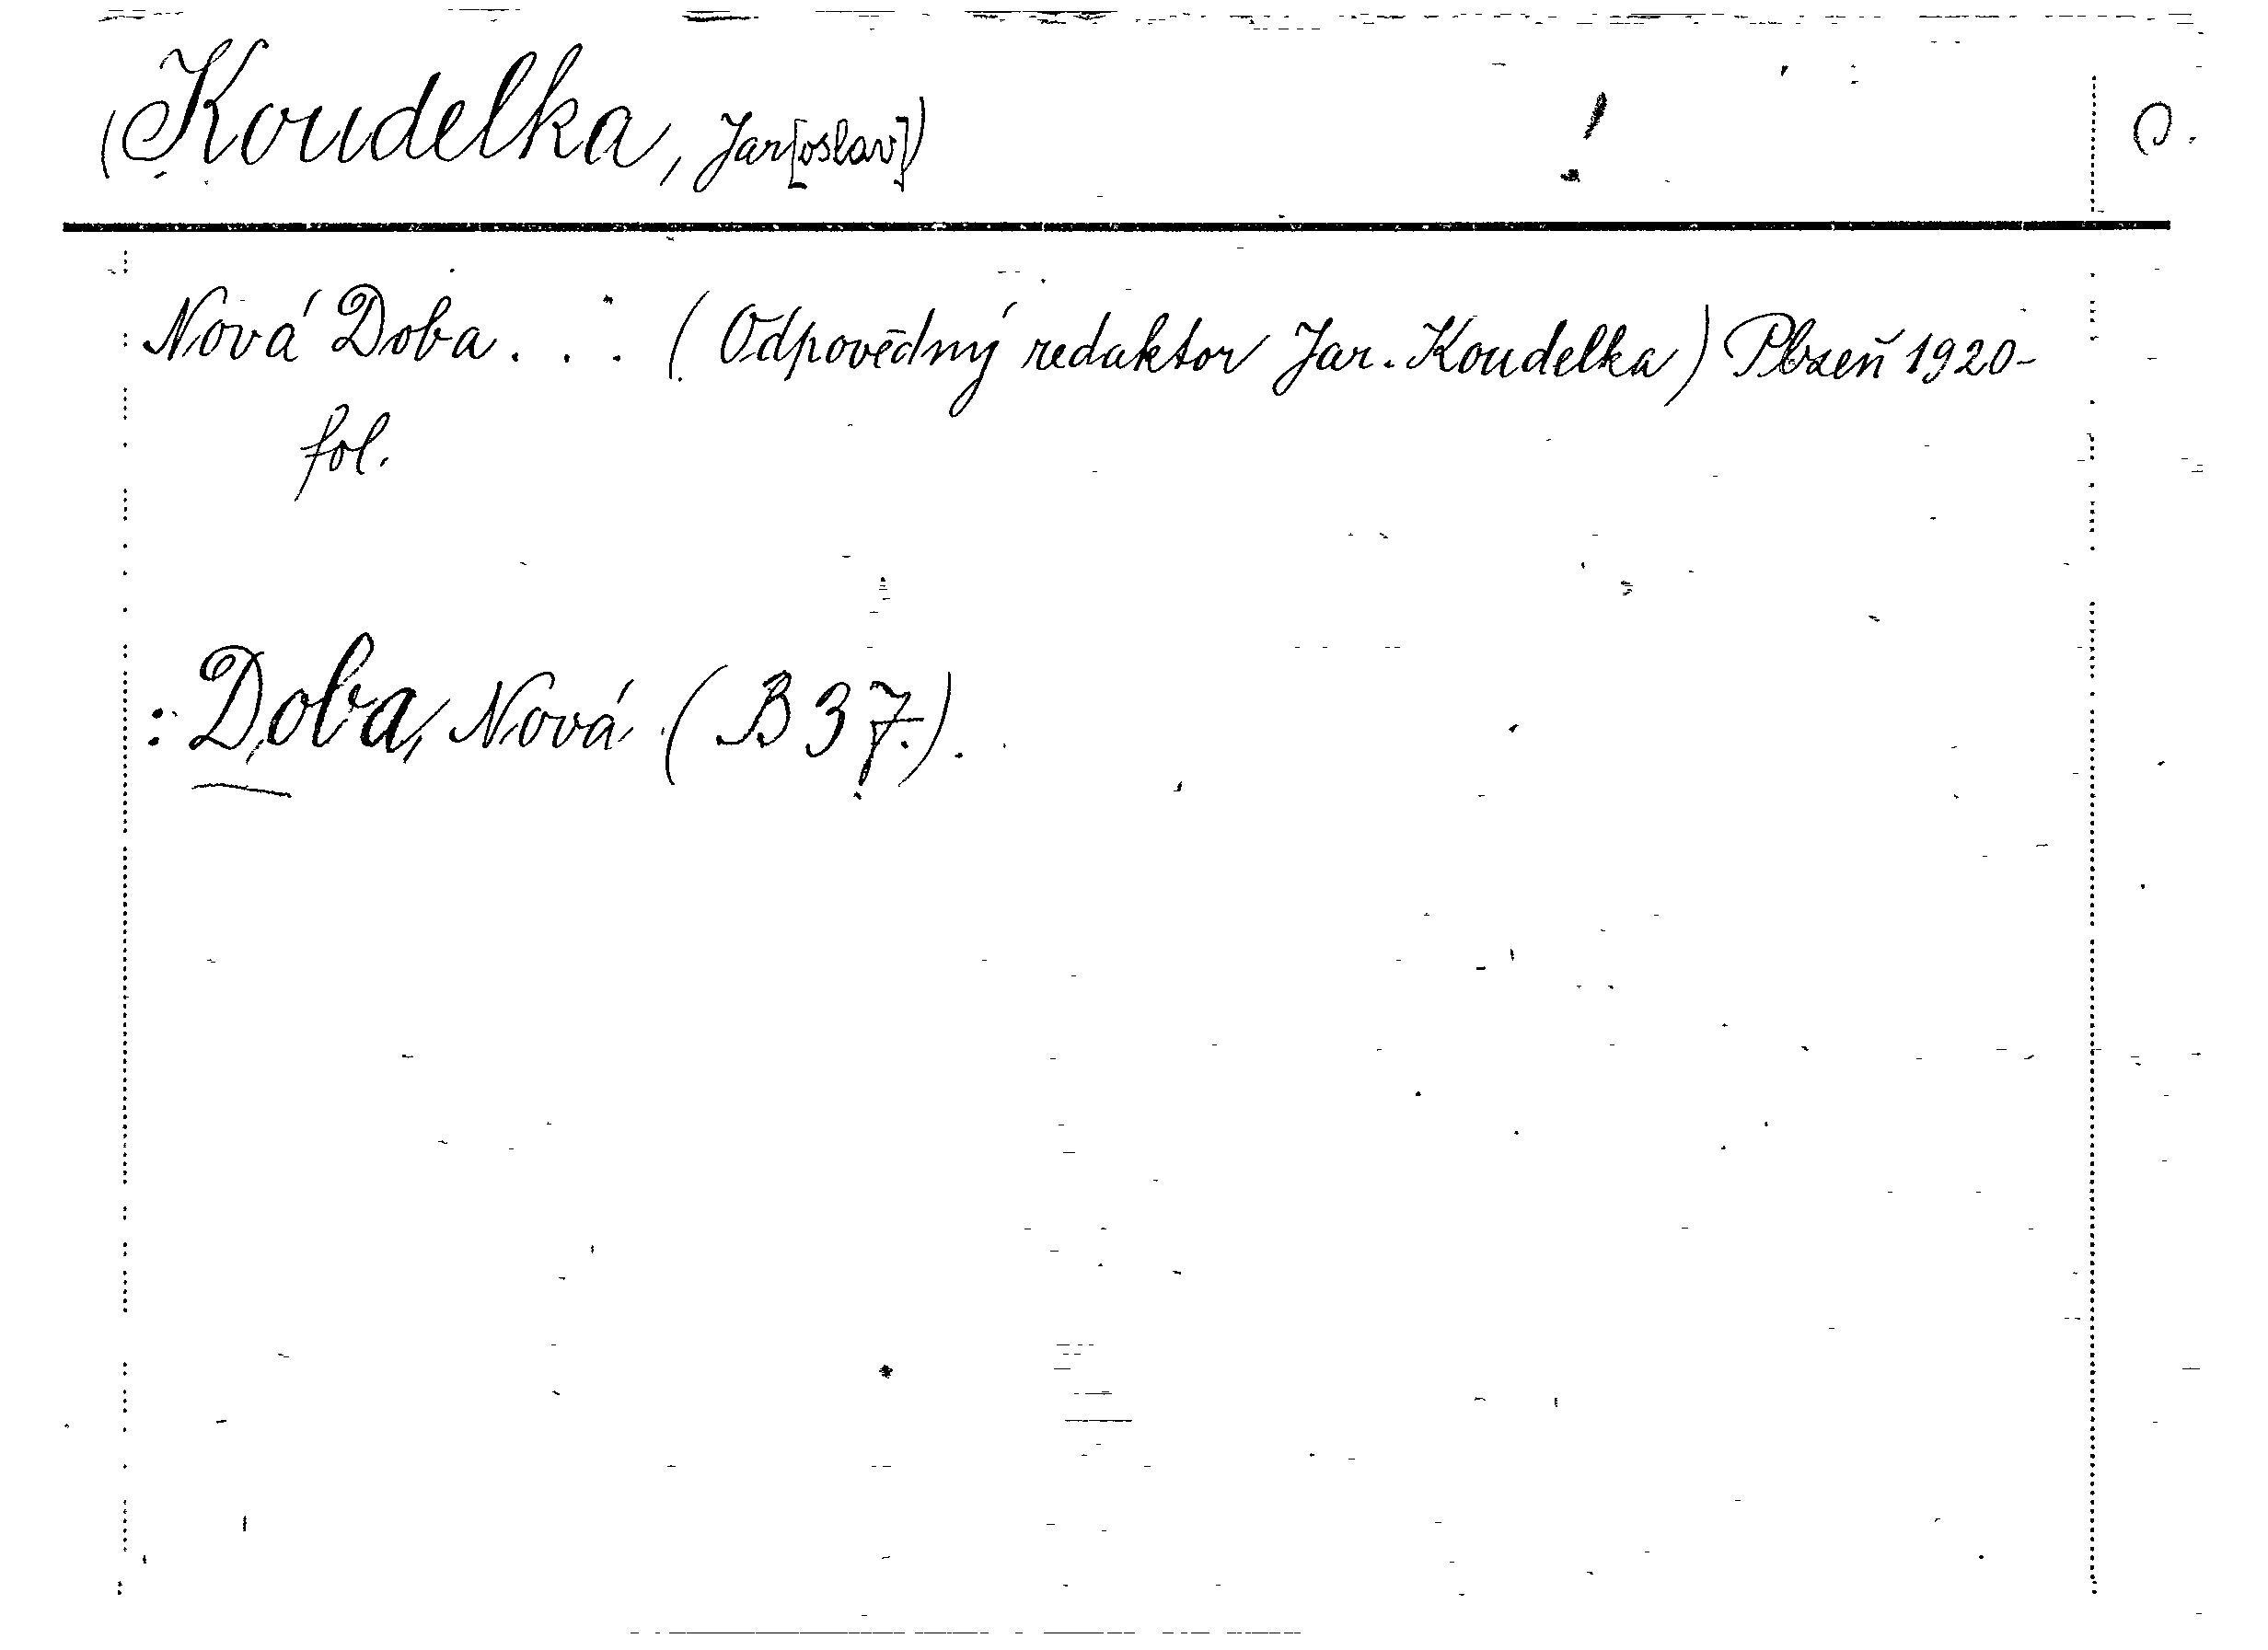 (Koudelka, Jar[oslav]) ! O.
Nová Doba... (Odpovědný redaktor Jar. Koudelka) Plzeň 1920-
fol.
: Doba, Nová (B 37.).